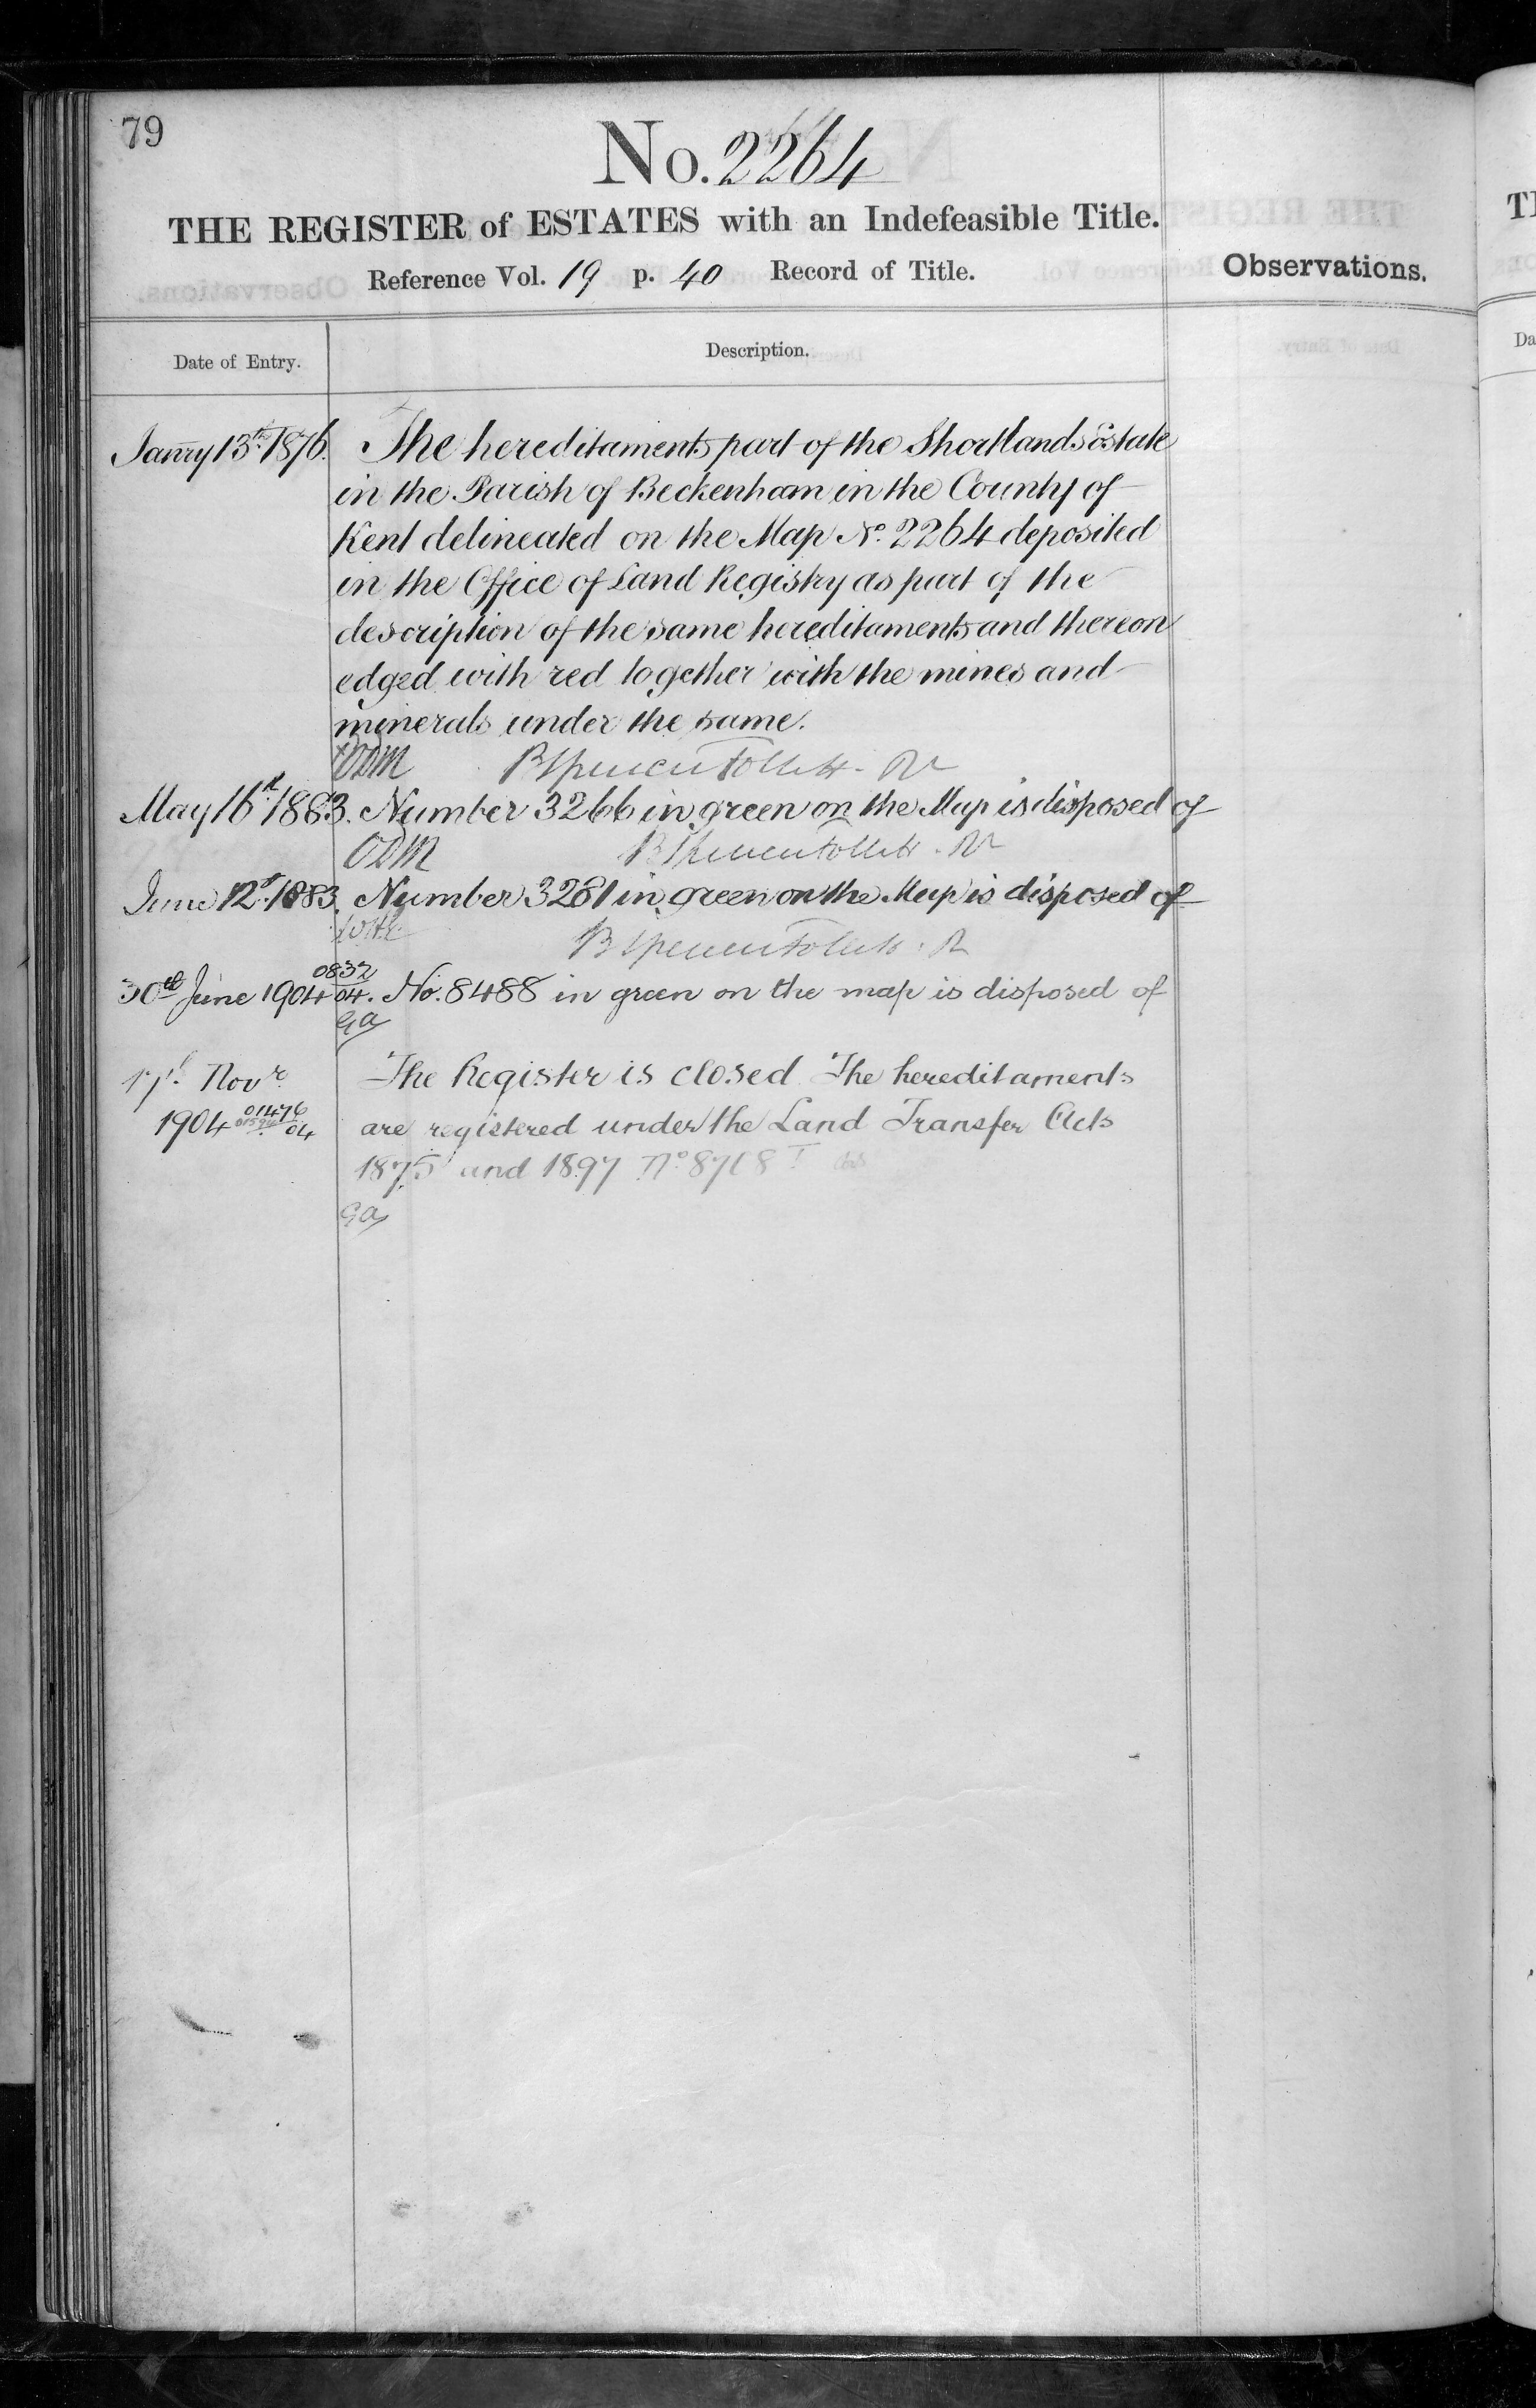 79
No. 2264
THE REGISTER of ESTATES with an Indefeasible Title.
Reference Vol. 19 p. 40 Record of Title.
Observations.
Date of Entry.
Description.
Janry 13th 1876. The hereditaments part of the Shortlands Estate
in the Parish of Beckenham in the County of
Kent delineated on the Map No. 2264 deposited
in the Office of Land Registry as part of the
description of the same hereditaments and thereon
edged with red together with the mines and
minerals under the same.
ODM B Spencer Follett - Rr
May 16th 1883. Number 3266 in green on the Map is disposed of
ODM B Spencer Follett - Rr
June 12th 1883. Number 3281 in green on the Map is disposed of
B Spencer Follett. R
0832
30th June 1904 04. No. 8488 in green on the map is disposed of
GA
17th Novr. The Register is closed The hereditaments
1904 01476 04 are registered under the Land Transfer Acts
1875 and 1897 No 8718
GA
TI
Da